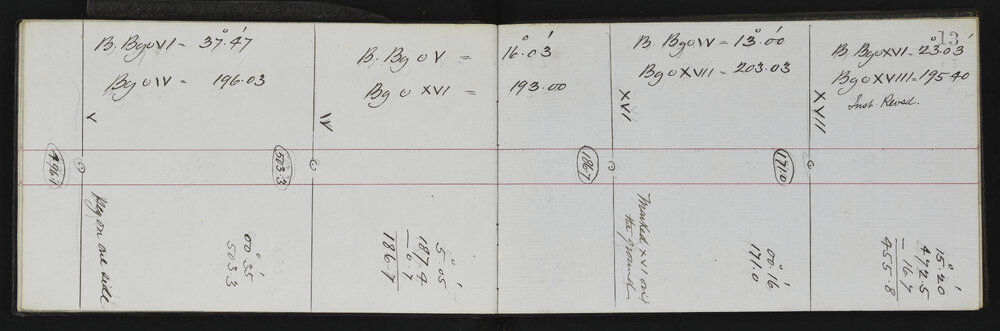 B. Bg ⊙ VI = 37°.47'
Bg ⊙ IV = 196.03
V
496.7
Peg on one side
B. Bg ⊙ V = 16°.03'
Bg ⊙ XVI = 193.00
IV
503.3
00°.35'
503.3
5°.05'
187.4
- 0.7
186.7
13
B. Bg ⊙ IV = 13°.00'
Bg ⊙ XVII = 203.03
XVI
186.7
Marked XVI on
the ground
00°.16'
171.0
B. Bg ⊙ XVI = 23°.03'
Bg ⊙ XVIII = 195.40
Inst. Revsd.
XVII
171.0
15°.20'
472.5
- 16.7
455.8